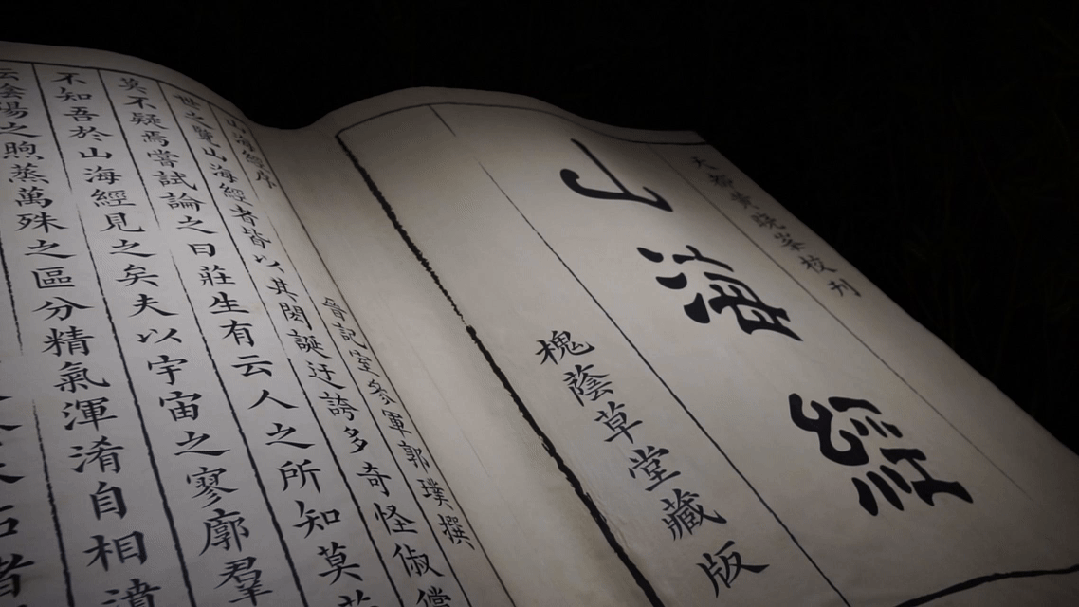 天都黃曉峯校刊
山海經
槐蔭草堂藏版
山海經序
晉記室參軍郭璞撰
世之覽山海經者皆以其閎誕迂誇多奇怪俶儻
莫不疑焉嘗試論之曰莊生有云人之所知莫若
不知吾於山海經見之矣夫以宇宙之寥廓羣
陰陽之煦蒸萬殊之區分精氣渾淆自相濆